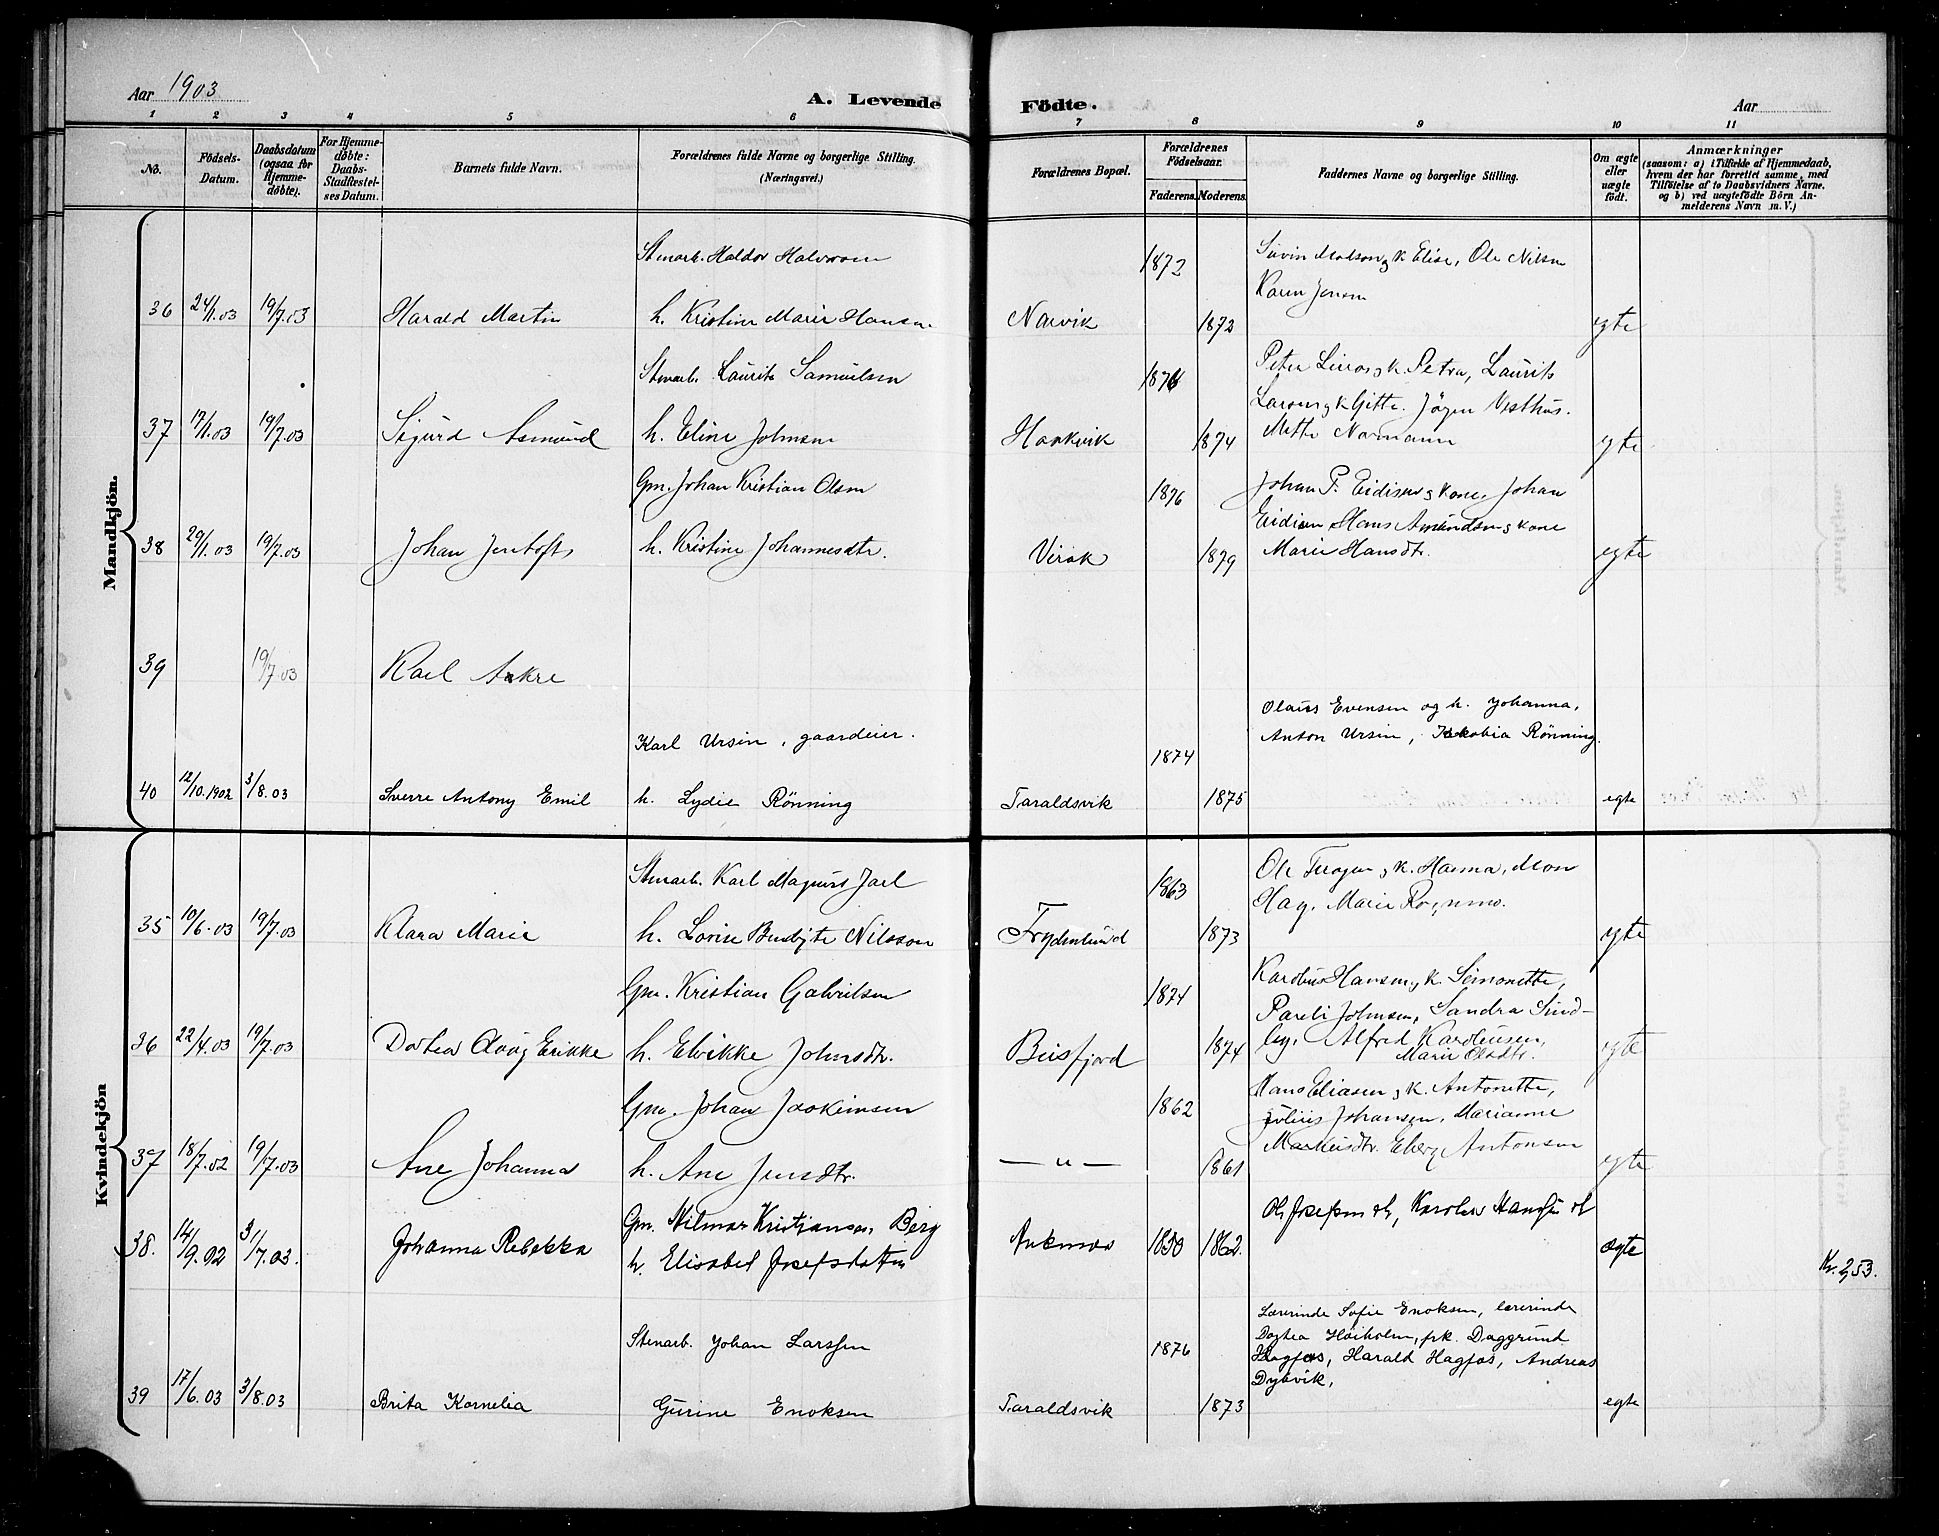 Aar 1903
A. Levende
Födte.
Aar
1 2 3 4 5 6 7 8 9 10 11
No.
Födsels-Datum.
Daabsdatum (ogsaa for Hjemme-döbte).
For Hjemme-döbte: Daabs-Stadfæstel-ses Datum.
Barnets fulde Navn.
Forældrenes fulde Navne og borgerlige Stilling. (Næringsvei.)
Forældrenes Bopæl.
Forældrenes Födselsaar.
Faderens. Moderens.
Faddernes Navne og borgerlige Stilling.
Om ægte eller uægte födt.
Anmærkninger
(saasom: a) i Tilfælde af Hjemmedaab,
hvem der har forrettet samme, med
Tilföielse af to Daabsvidners Navne.
og b) ved uægtefödte Börn An-
melderens Navn m. V.)
Mandkjön.
Stenarb. Haldor Halvorsen 1872 Elise, Ole Nilsen
Karen Jensen
36 24/1.03 19/7.03 Harald Martin h. Kristine Marie Hansen Narvik 1872 egte
Stenarb. Laurits Samuelsen 1876 Peter k. Petra, Laurits
Larsen g k Gitte. Jögen Vesthus.
37 17/1.03 19/7.03 Sigurd Asmund h. Eline Johnsen Haakvik 1874 Mette Normann egte
Gm. Johan Kristian Olsen 1876 Johan P. Eidisen g kone, Johan
Eidisen Hans Amundsen g kone
38 29/1.03 19/7.03 Johan Jentoft h. Kristine Johannesdtr. Virak 1879 Marie Hansdtr. egte
39 19/7.03 Karl Ankre
Karl Ursin, gaardeier. 1874 Olaus Evensen og h. Johanna,
Anton Ursin, Jakobia Rönning.
40 12/10.1902 3/8.03 Sverre Antony Emil h. Lydie Rönning Taraldsvik 1875 egte
Kvindekjön
Stenarb. Karl Magnus Jarl 1863 Ole k. Hanna, Mon
Hag. Marie
35 10/6.03 19/7.03 Klara Marie h. Lovise Nilsson Frydenlund 1873 egte
Gm. Kristian Gabrilsen 1874 Hansen g k. Simonette,
Pareli Johnsen, Sandra Lind-
36 22/4.03 19/7.03 Dortea Aaag Erikke h. Elvikke Johnsdtr. Beisfjord 1874 Alfred Karoliusen, egte
Marie Olsdtr.
Gm. Johan Joakimsen 1862 Hans Eliasen g k. Antonette,
Julius Johansen, Marianne
37 18/7.02 19/7.03 Ane Johanna h. Ane Jensdtr. — " — 1861 Markusdtr. Antonsen egte
Gm. Hilmar Kristjansen Berg Ole Josefsen
38. 14/9.02 3/7.03. Johanna Rebekka h. Elisabet Josefsdatter Ankenes 1850 1862. ægte
Kr. 2,53.
Stenarb. Johan Larssen 1876 Lærerinde Sofie Enoksen, lærerinde
Dortea Höiholm, frk. Daggrund
Hagfos, Harald Hagfos, Andreas
Dybvik,
39 17/6.03 3/8.03 Brita Kornelia Gurine Enoksen Taraldsvik 1873 egte